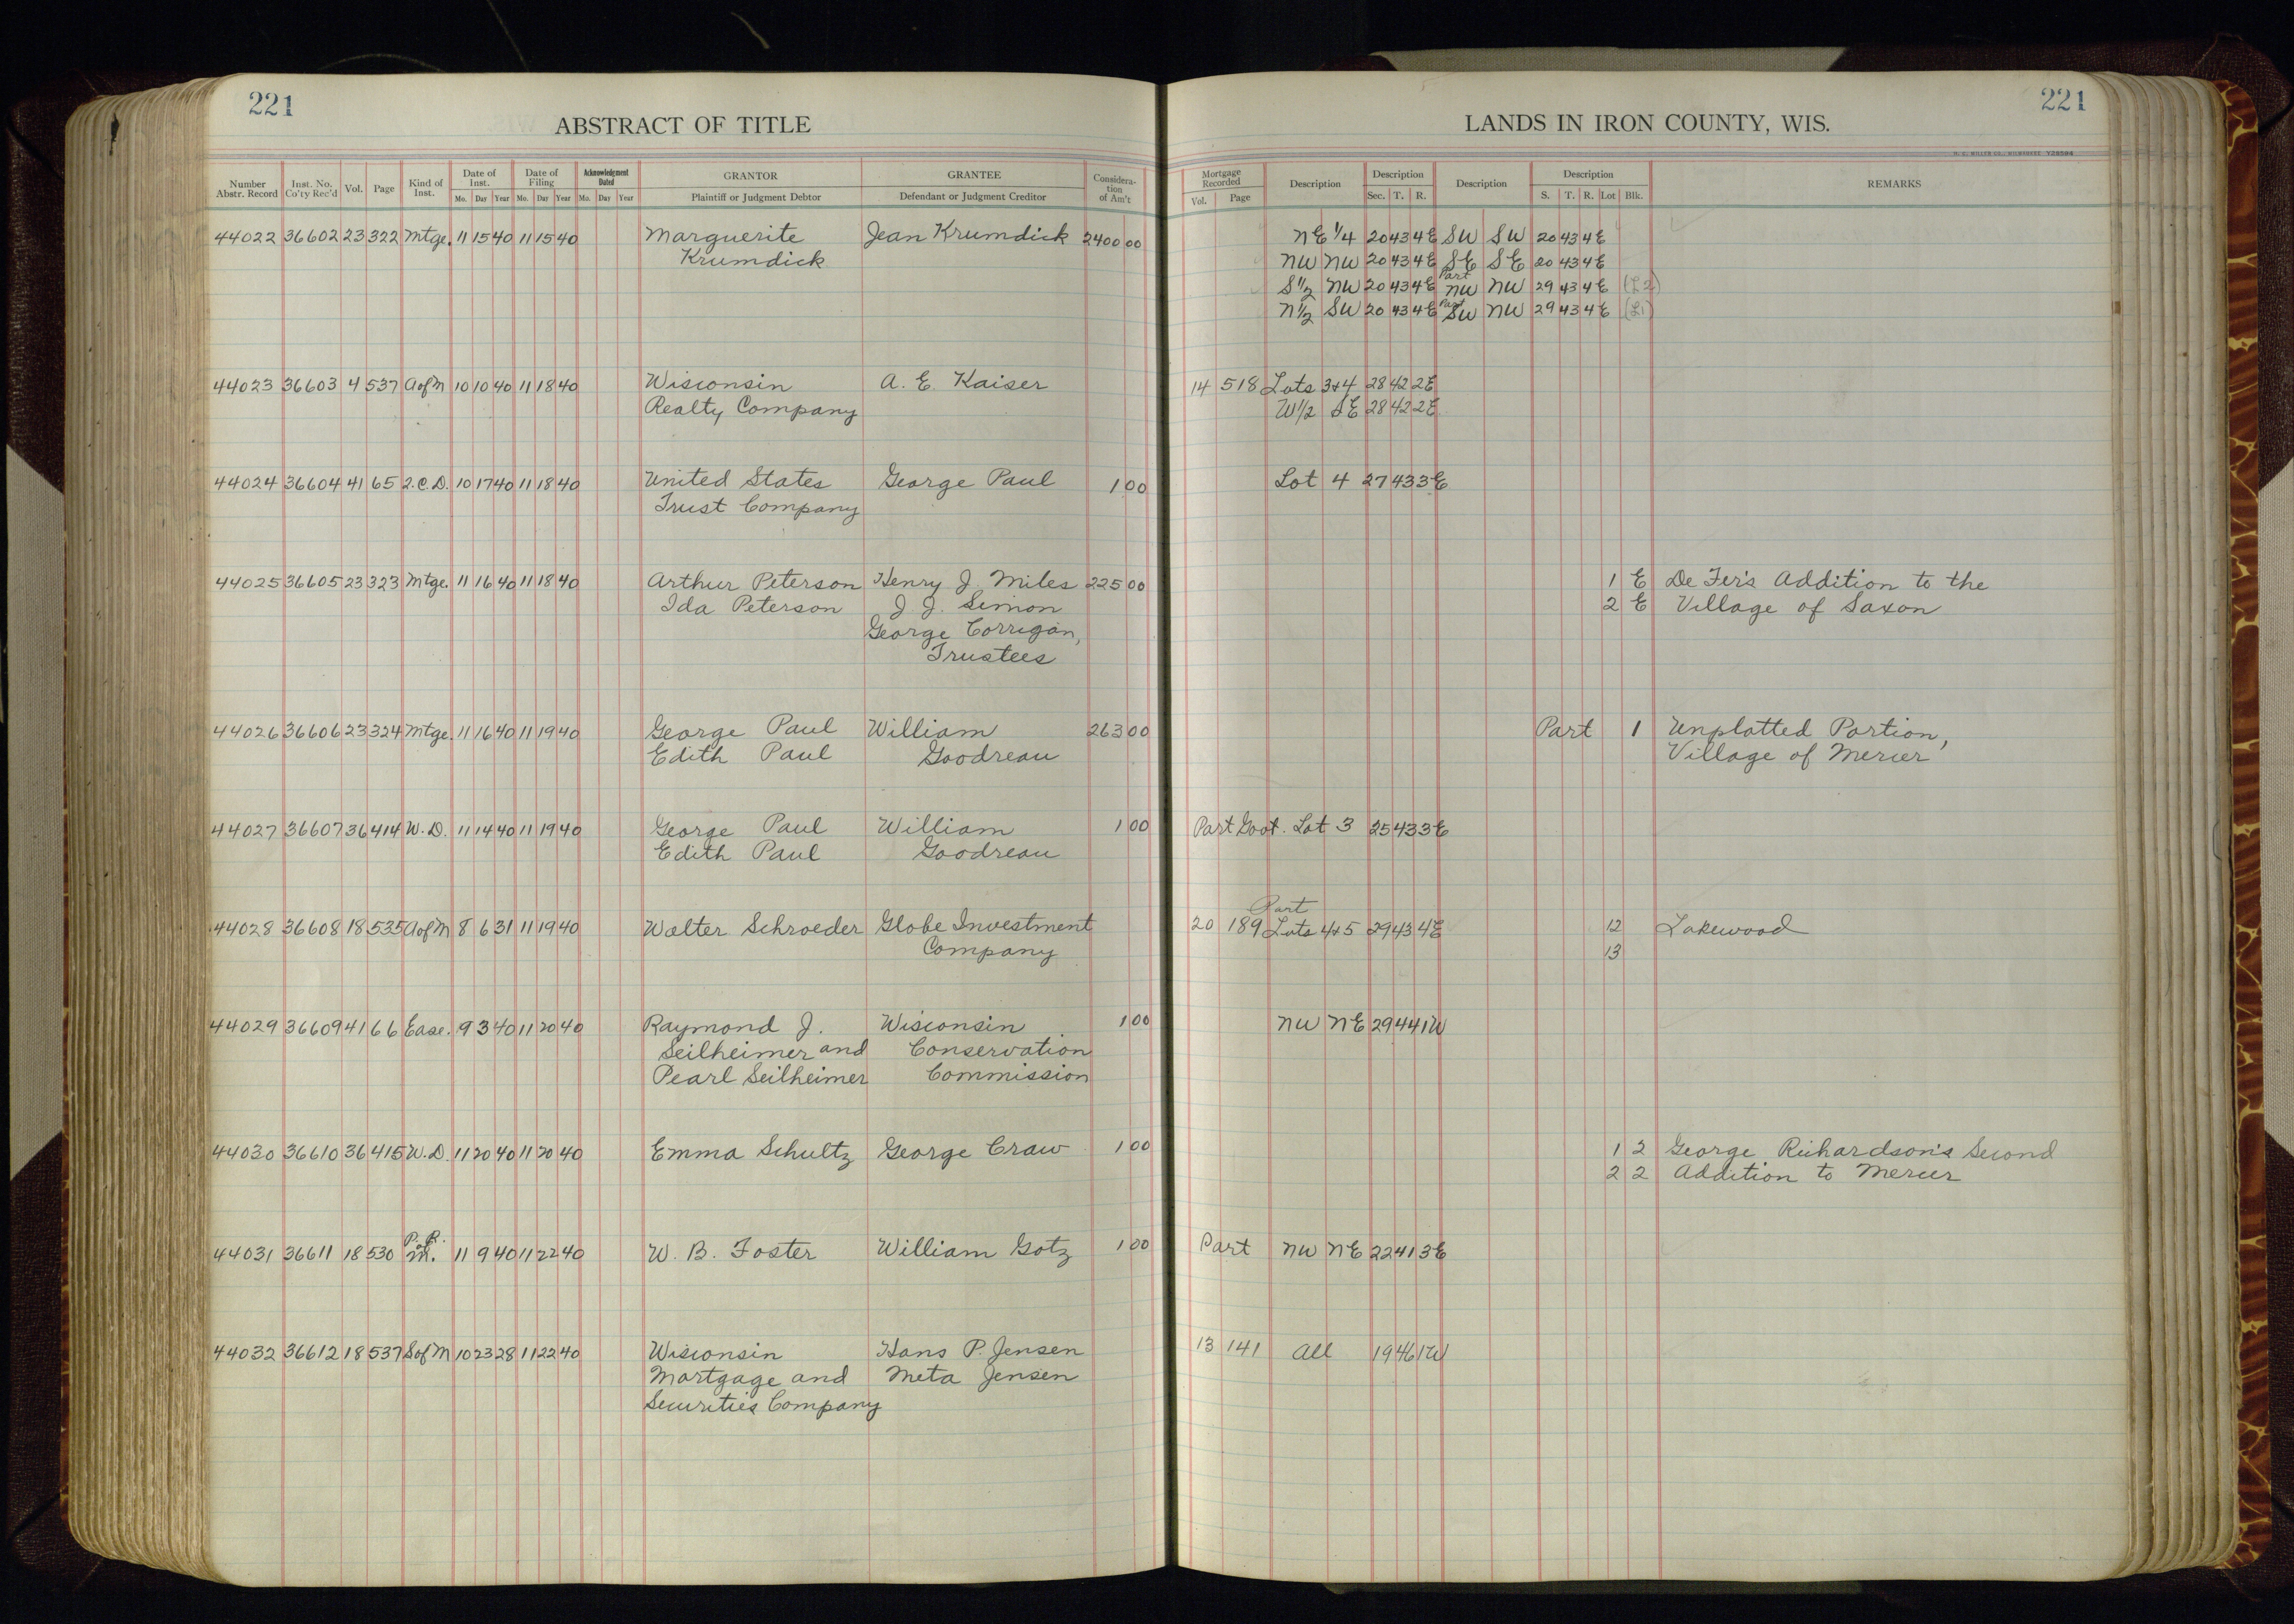 221
221
ABSTRACT OF TITLE
LANDS IN IRON COUNTY, WIS.
H. C. MILLER CO., MILWAUKEE
Number Abstr. Record Inst. No. Co'ty Rec'd Vol. Page Kind of Inst. Date of Inst. Mo. Day Year Date of Filing Mo. Day Year Acknowledgment Dated Mo. Day Year GRANTOR Plaintiff or Judgment Debtor GRANTEE Defendant or Judgment Creditor Consideration of Am't Mortgage Recorded Vol. Page Description Description Sec. T. R. Description Description S. T. R. Lot Blk. REMARKS
44022 36602 23 322 Mtge. 11 15 40 11 15 40 Marguerite Jean Krumdick 2400 00 NE 1/4 20 43 4E SW SW 20 43 4E
Krumdick NW NW 20 43 4E SE SE 20 43 4E
S1/2 NW 20 43 4E Part NW NW 29 43 4E (L2)
N1/2 SW 20 43 4E Part SW NW 29 43 4E (L1)
44023 36603 4 537 AofM 10 10 40 11 18 40 Wisconsin A. E. Kaiser 14 518 Lots 3+4 28 42 2E
Realty Company W1/2 SE 28 42 2E
44024 36604 41 65 2.C.D. 10 17 40 11 18 40 United States George Paul 1 00 Lot 4 27 43 3E
Trust Company
44025 36605 23 323 Mtge. 11 16 40 11 18 40 Arthur Peterson Henry J. Miles 225 00 1 E De Fer's Addition to the
Ida Peterson J. J. Simon 2 E Village of Saxon
George Corrigan,
Trustees
44026 36606 23 324 Mtge. 11 16 40 11 19 40 George Paul William 263 00 Part 1 Unplatted Portion,
Edith Paul Goodreau Village of Mercer
44027 36607 36 414 W.D. 11 14 40 11 19 40 George Paul William 1 00 Part Govt. Lot 3 25 43 3E
Edith Paul Goodreau
44028 36608 18 535 AofM 8 6 31 11 19 40 Walter Schroeder Globe Investment 20 189 Part Lots 4+5 29 43 4E 12 Lakewood
Company 13
44029 36609 41 66 Ease. 9 3 40 11 20 40 Raymond J. Wisconsin 1 00 NW NE 29 44 1W
Seilheimer and Conservation
Pearl Seilheimer Commission
44030 36610 36 415 W.D. 11 20 40 11 20 40 Emma Schultz George Craw 1 00 1 2 George Richardson's Second
2 2 Addition to Mercer
44031 36611 18 530 P.R. of M. 11 9 40 11 22 40 W. B. Foster William Gotz 1 00 Part NW NE 22 41 3E
44032 36612 18 537 SofM 10 23 28 11 22 40 Wisconsin Hans P. Jensen 13 141 All 19 46 1W
Mortgage and Meta Jensen
Securities Company